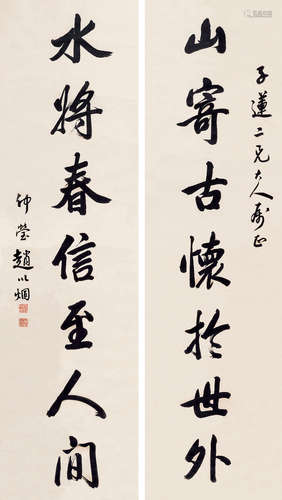 子蓮二兄大人属正
山寄古懷於世外
水將春信至人间
仲瑩趙以炯